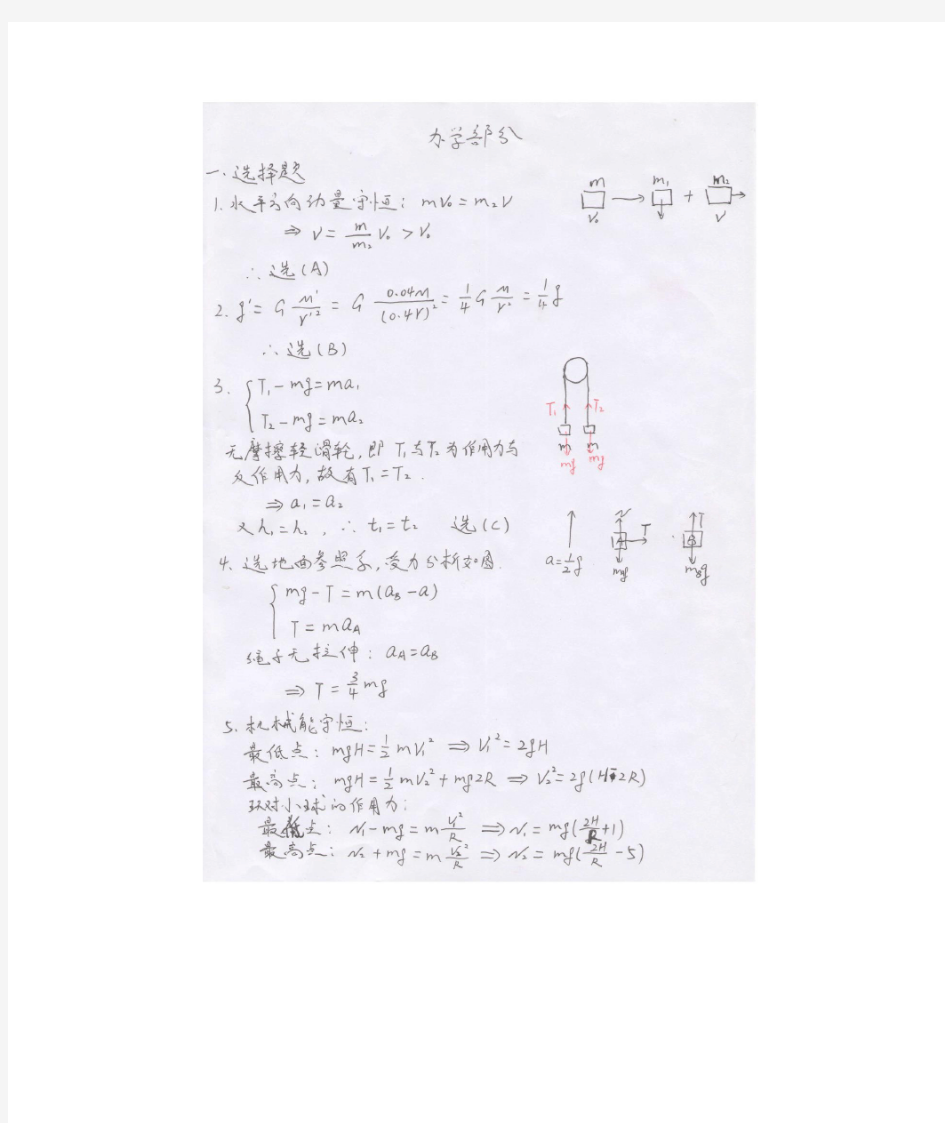 力学部分
一.选择题
1.水平方向动量守恒: mV₀=m₂V
m → m₁ + m₂
V₀ V
⇒ V= m/m₂ V₀ > V₀
∴选(A)
2. g'= G M'/r'² = G 0.04M/(0.4r)² = 1/4 G M/r² = 1/4 g
∴选(B)
3. { T₁-mg=ma₁
T₂-mg=ma₂
T₁ T₂
m m
mg mg
无摩擦轻滑轮,即T₁与T₂为作用力与
反作用力,故有T₁=T₂.
⇒ a₁=a₂
又h₁=h₂, ∴ t₁=t₂ 选(C)
4.选地面参照系,受力分析如图.
a=1/2 g N A T mg T B mg
{ mg-T=m(aB-a)
T=maA
绳子无拉伸: aA=aB
⇒ T=3/4 mg
5.机械能守恒:
最低点: mgH=1/2 mV₁² ⇒ V₁²=2gH
最高点: mgH=1/2 mV₂²+mg2R ⇒ V₂²=2g(H-2R)
环对小球的作用力:
最低点: N₁-mg=m V₁²/R ⇒ N₁=mg(2H/R+1)
最高点: N₂+mg=m V₂²/R ⇒ N₂=mg(2H/R-5)